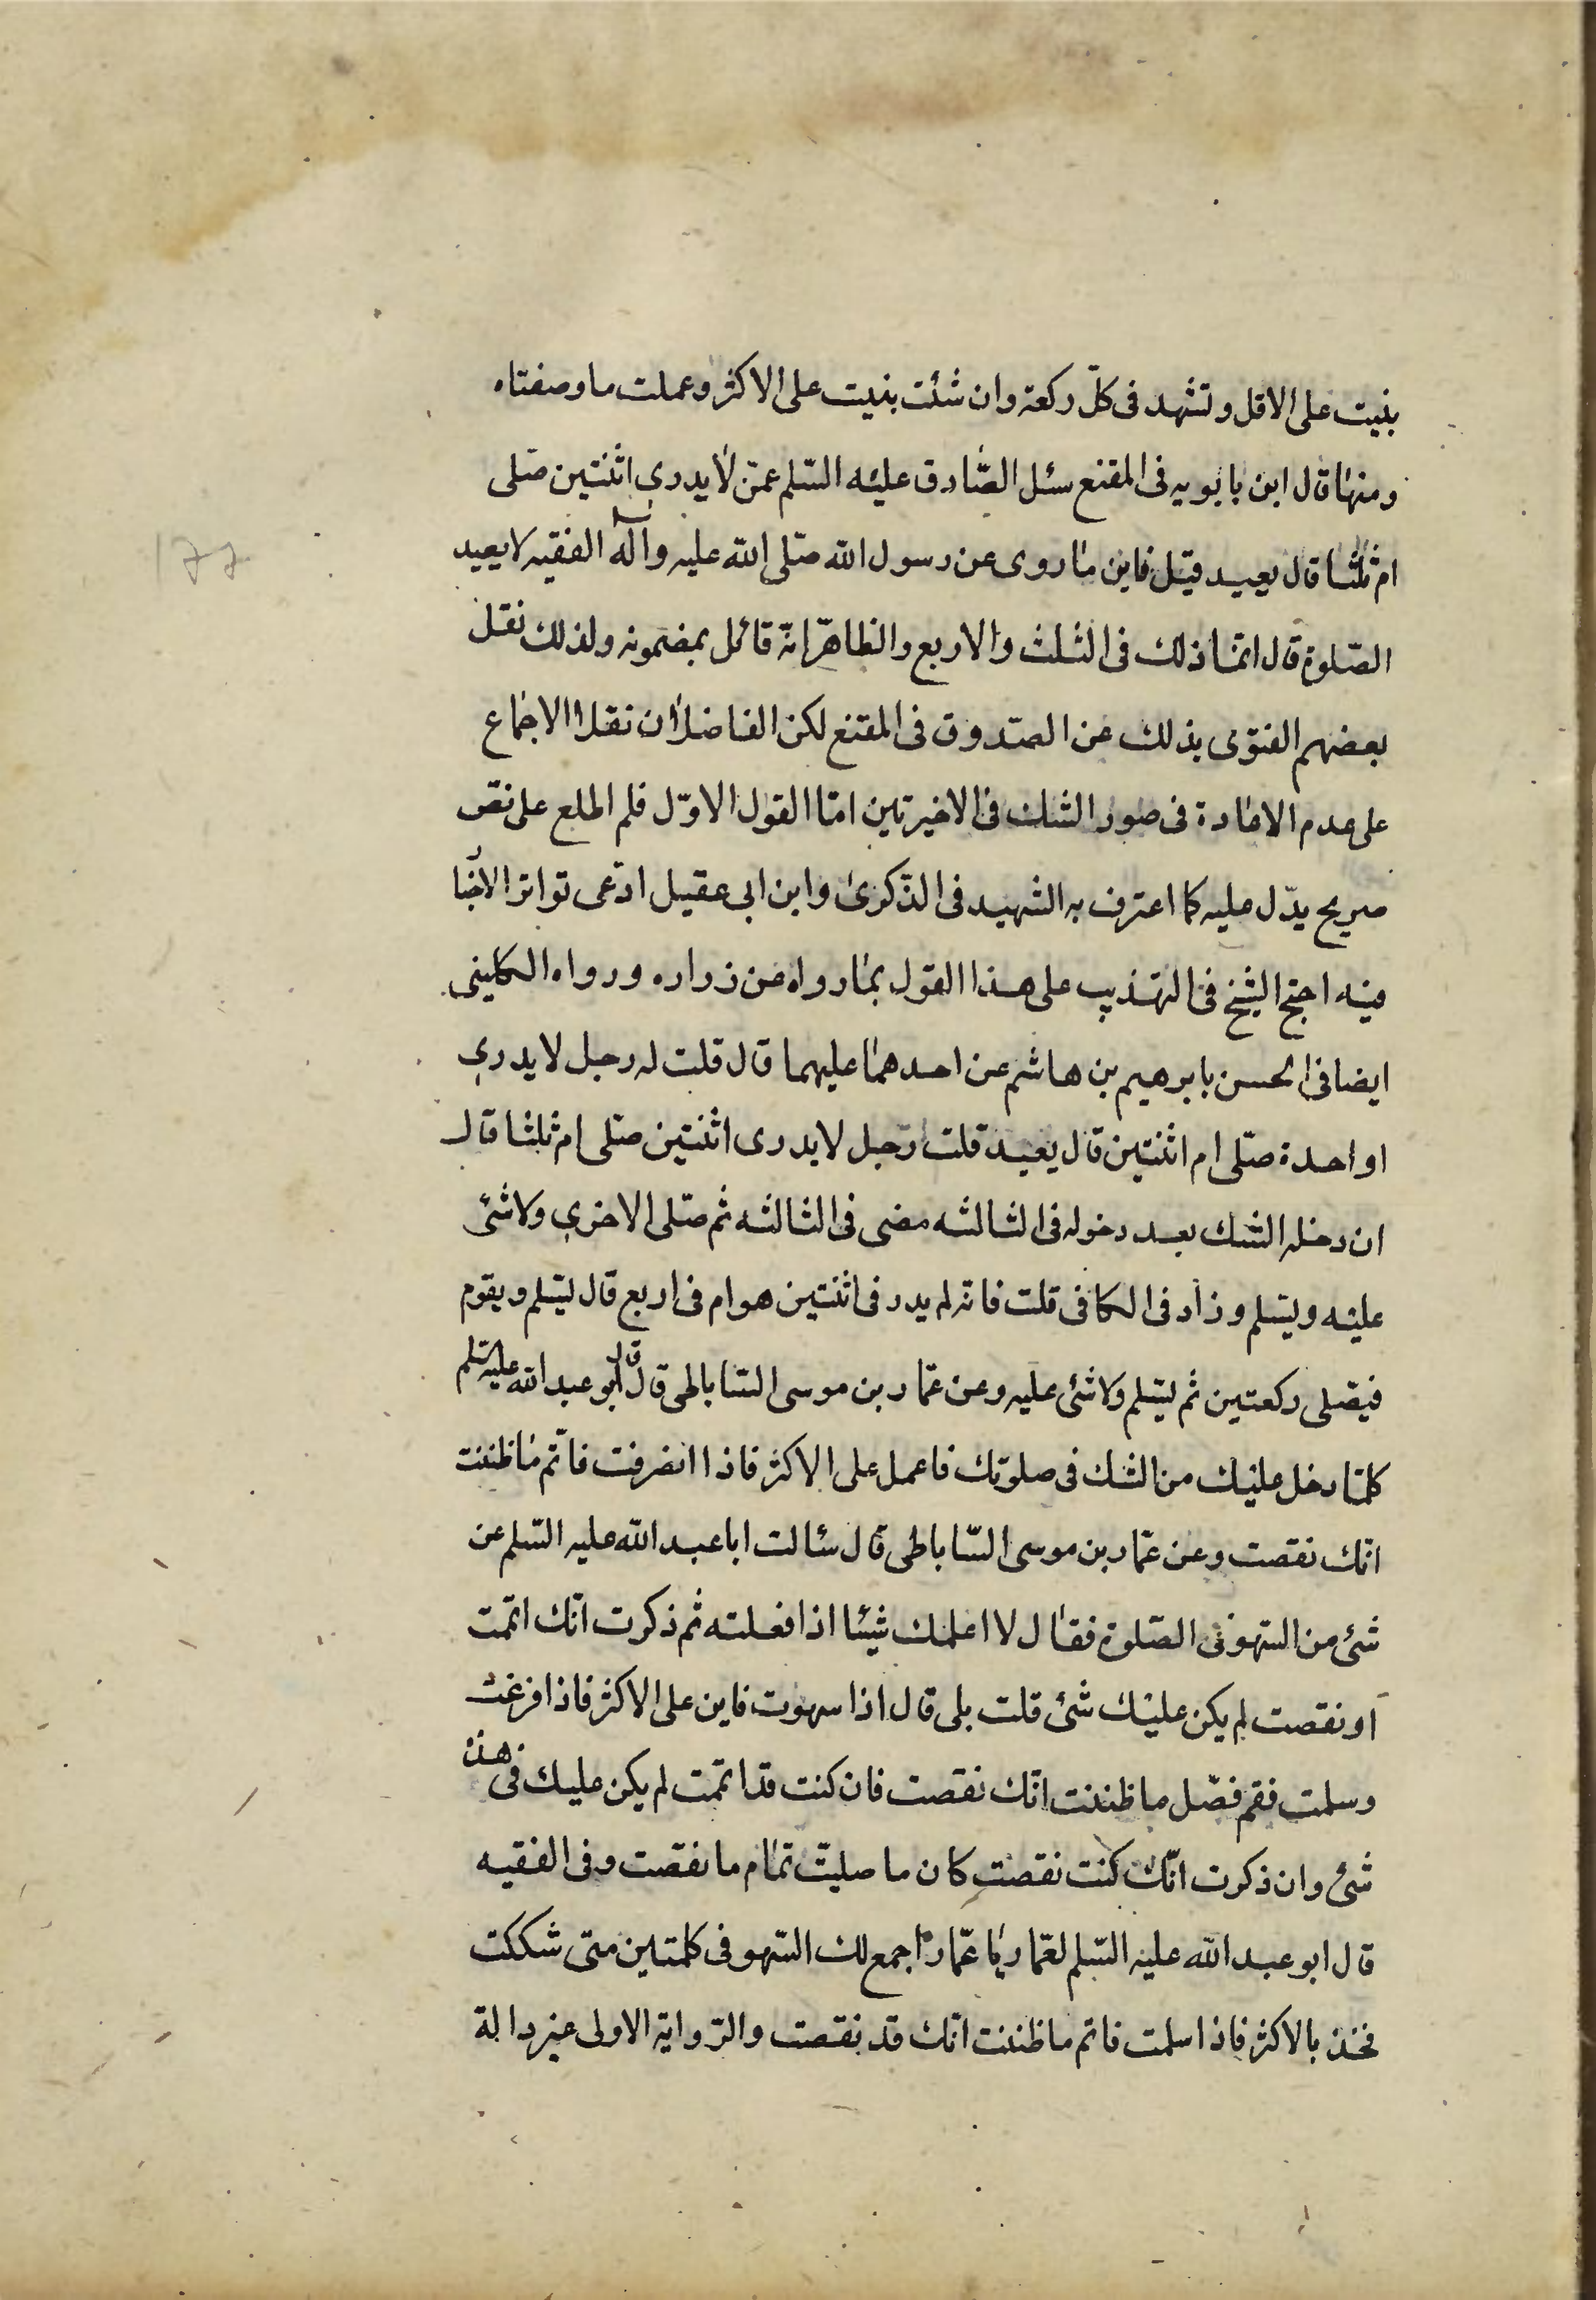 بنیت علی الاقل و تشهد فی کلّ رکعة وان شئت بنیت علی الاکثر وعملت ما وصفناه
ومنها قال ابن بابویه فی المقنع سئل الصّادق علیه السّلم عمّن لا یدری اثنتین صلّی
ام ثلثا قال یعید قیل فاین ما روی عن رسول الله صلّی الله علیه وآله الفقیه لا یعید
الصّلوة قال انّما ذلک فی الثلث والاربع والظاهر انّه قائل بمضمونه ولذلک نقل
بعضهم الفتوی بذلک عن الصّدوق فی المقنع لکن الفاضلان نقلا الاجماع
علی عدم الاعادة فی صور الشک فی الاخیرتین امّا القول الاوّل فلم اطلع علی نصّ
صریح یدّل علیه کما اعترف به الشهید فی الذّکری وابن ابی عقیل ادّعی تواتر الاخبار
فیه احتج الشیخ فی التهذیب علی هذا القول بما رواه عن زراره ورواه الکلینی
ایضا فی الحسن بابرهیم بن هاشم عن احدهما علیهما قال قلت له رجل لا یدری
اواحدة صلّی ام اثنتین قال یعید قلت رجل لا یدری اثنتین صلّی ام ثلثا قال
ان دخله الشک بعد دخوله فی الثالثه مضی فی الثالثه ثم صلّی الاخری ولا شئ
علیه ویسّلم وزاد فی الکافی قلت فانّه لم یدر فی اثنتین هو ام فی اربع قال یسّلم ویقوم
فیصّلی رکعتین ثم یسّلم ولا شئ علیه وعن عمّار بن موسی السّاباطی قال قال ابو عبد الله علیه السّلم
کلّما دخل علیک من الشک فی صلوتک فاعمل علی الاکثر فاذا انصرفت فاتّم ما ظننت
انّک نقصت وعن عمّار بن موسی السّاباطی قال سئالت ابا عبد الله علیه السّلم عن
شئ من السّهو فی الصّلوة فقال لا اعلمک شیئا اذا فعلته ثم ذکرت انّک اتممت
او نقصت لم یکن علیک شئ قلت بلی قال اذا سهوت فابن علی الاکثر فاذا فرغت
وسلمت فقم فصّل ما ظننت انّک نقصت فان کنت قد اتممت لم یکن علیک فی هذه
شئ وان ذکرت انّک کنت نقصت کان ما صلیّت تمام ما نقصت وفی الفقیه
قال ابو عبد الله علیه السّلم لعمّار یا عمّار اجمع لک السّهو فی کلمتین متی شککت
فخذ بالاکثر فاذا سلمت فاتم ما ظننت انّک قد نقصت والرّوایة الاولی غیر دالة
۱۷۷